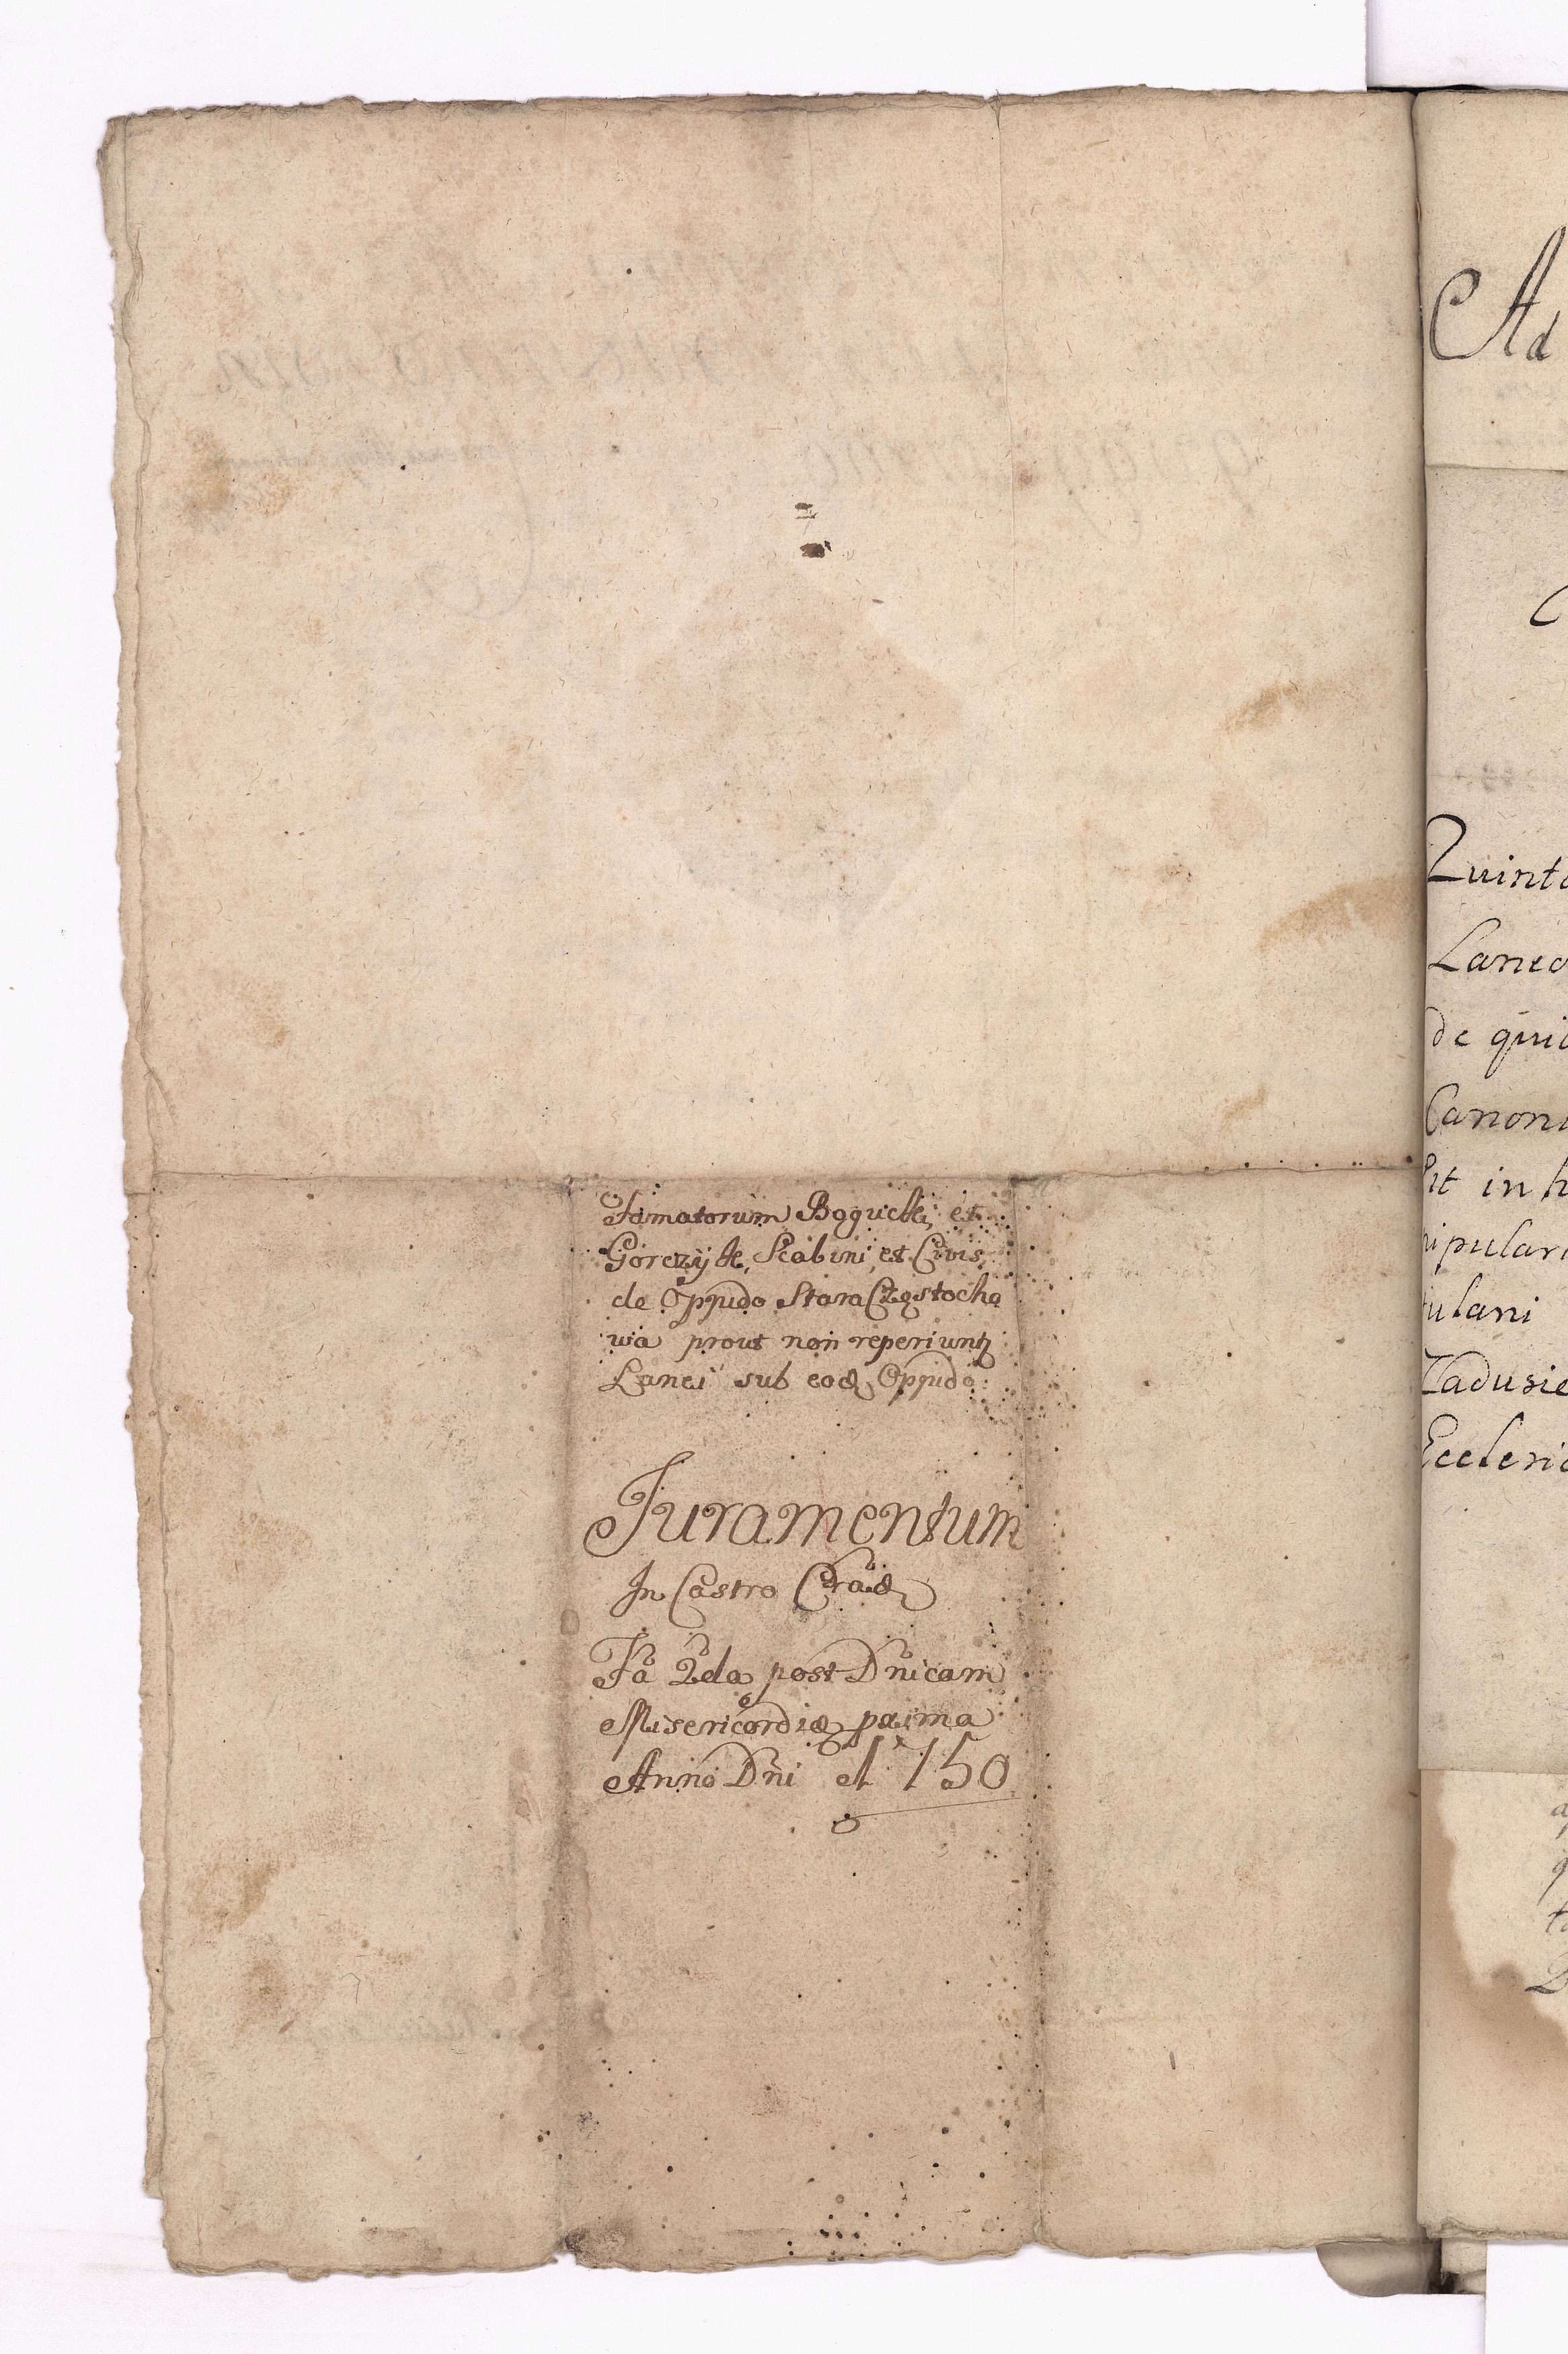 Famatorum Bogucki, et
Gorczyk, Scabini, et Civis,
de Oppido Stara Częstocho
wia prout non reperiuntꝫ
Lanei sub eod Oppido
Juramentum
In Castro
Fã 2da post Dñicam
Misericordiæ
Anno Dñi 1750
Ad
Quinto
Laneo
de qui
Canoni
in h
pulari
ulani
Zadusie
Ecclesi